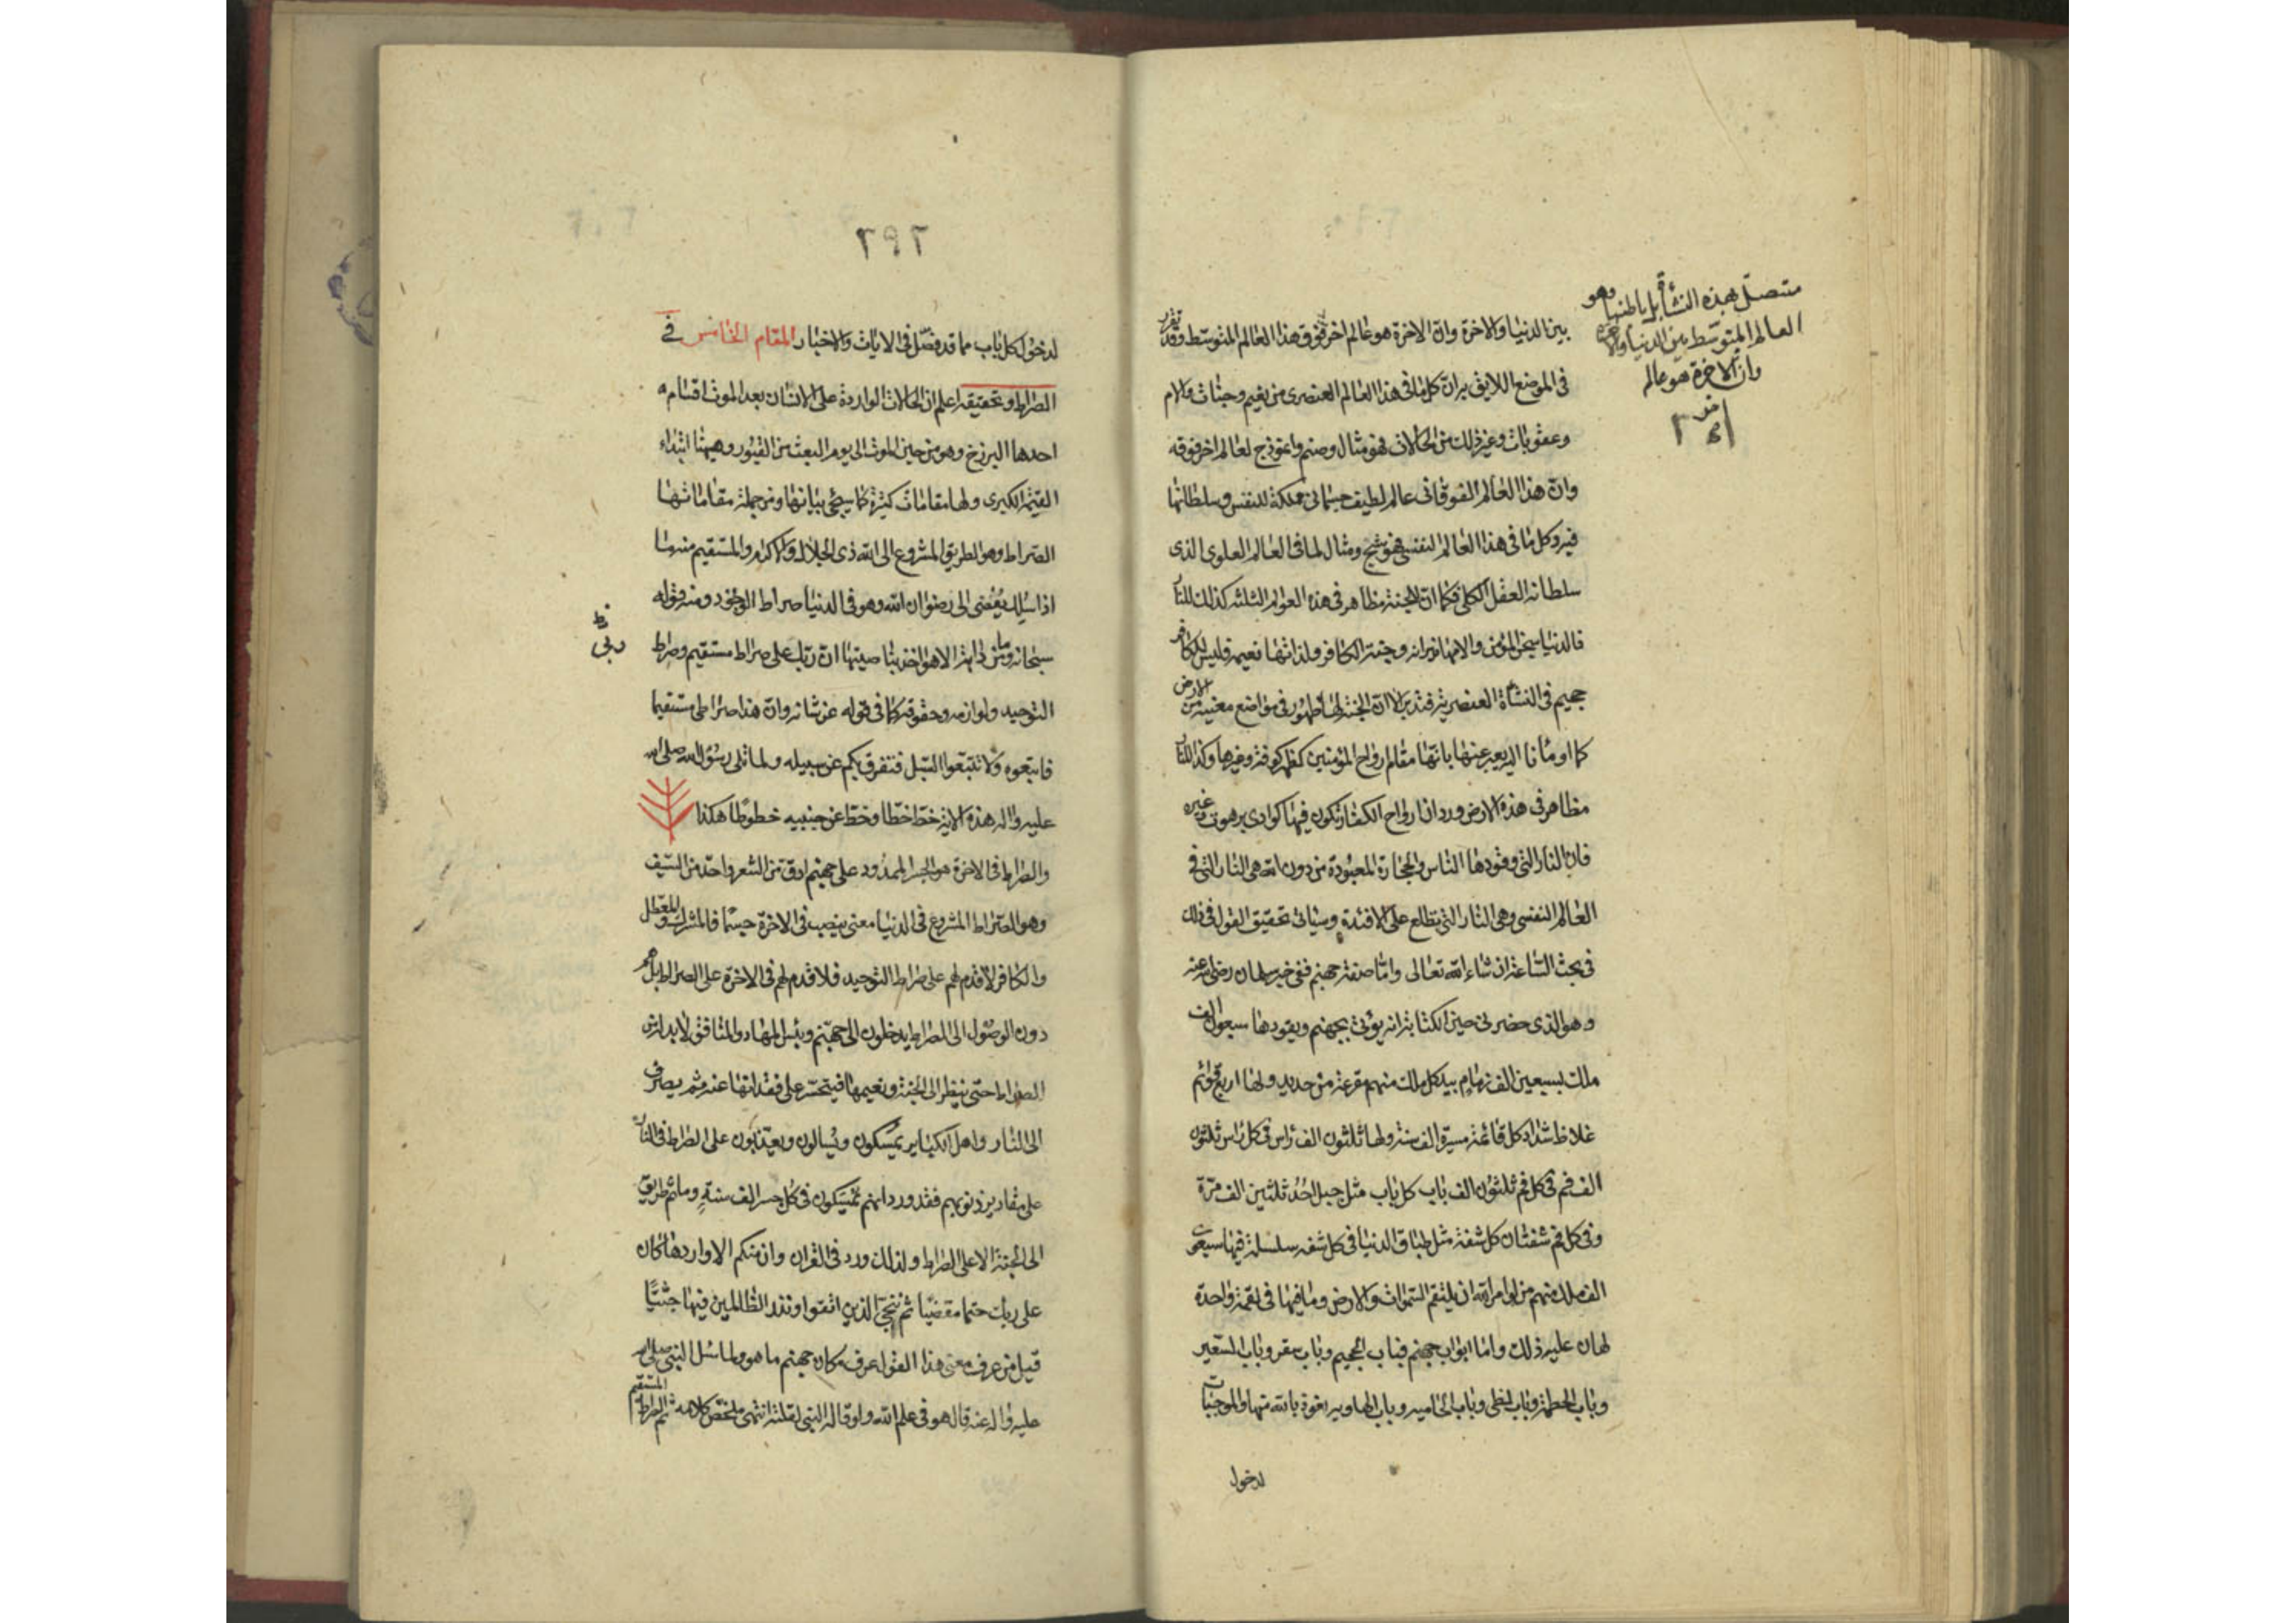 متصل بهذه النشأة بل باطنها وهو
العالم المتوسط بين الدنيا والاخرة
وان الاخرة هو عالم
اخر
بين الدنيا والاخرة وان الاخرة هو عالم اخر فوق هذا العالم المتوسط وقد تقرر
فى الموضع اللايق به ان كل ما فى هذا العالم العنصرى من نعيم وجنات والام
وعقوبات وغير ذلك من الحالات فهو مثال وصنم وانموذج لعالم اخر فوقه
وان هذا العالم الفوقانى عالم لطيف جسمانى مملكة للنفس وسلطانها
فيه وكل ما فى هذا العالم النفسى فهو شبح ومثال لما فى العالم العلوى الذى
سلطانه العقل الكلى فكما ان للجنة مظاهر فى هذه العوالم الثلثة كذلك للنار
فالدنيا سجن المؤمن والامها نيرانه وجنة الكافر ولذاتها نعيمه فليس للكافر
جحيم فى النشأة العنصرية فتدبر الا ان الجنة لها ظهور فى مواضع معنية من الارض
كما اومأنا اليه يعبر عنها بانها مقام ارواح المؤمنين كظهر كوفة وغيرها وكذا للنار
مظاهر فى هذه الارض ورد ان ارواح الكفار تكون فيها كوادى برهوت وغيره
فان النار التى وقودها الناس والحجارة المعبودة من دون الله هى النار التى فى
العالم النفسى وهى النار التى تطلع على الافئدة وسيأتى تحقيق القول فى ذلك
فى بحث الساعة ان شاء الله تعالى واما صفة جهنم ففى خبر سلمان رضى الله عنه
وهو الذى حضرنى حين الكتابة انه يؤتى بجهنم ويقودها سبعون الف
ملك بسبعين الف زمام بيد كل ملك منهم مقرعة من حديد ولها اربع قوائم
غلاظ شداد كل قائمة مسيرة الف سنة ولها ثلثون الف راس فى كل راس ثلثون
الف فم فى كل فم ثلثون الف باب كل باب مثل جبل احد ثلثين الف مرة
وفى كل فم شفتان كل شفة مثل طباق الدنيا فى كل شفة سلسلة فيها سبعون
الف ملك منهم من لو امر الله ان يلتقم السموات والارض وما فيها فى لقمة واحدة
لهان عليه ذلك واما ابواب جهنم فباب الجحيم وباب سقر وباب السعير
وباب الحطمة وباب لظى وباب الحاميه وباب الهاويه نعوذ بالله منها والموجبات
لدخول
٢٩٢
لدخول كل باب مما قد فصل فى الايات والاخبار المقام الخامس فى
الصراط وتحقيقه اعلم ان الحالات الواردة على الانسان بعد الموت اقسام
احدها البرزخ وهو من حين الموت الى يوم البعث من القبور وهيهنا ابتداء
القيمة الكبرى ولها مقامات كثيرة كما سيجئ بيانها ومن جملة مقاماتها
الصراط وهو الطريق المشروع الى الله ذى الجلال والاكرام والمستقيم منه ما
اذا سلك يفضى الى رضوان الله وهو فى الدنيا صراط الوجود ومنه قوله
سبحانه وما من دابة الا هو اخذ بناصيتها ان ربى على صراط مستقيم وصراط
التوحيد ولوازمه وحقوقه كما فى قوله عز شانه وان هذا صراطى مستقيما
فاتبعوه ولا تتبعوا السبل فتفرق بكم عن سبيله ولما تلى رسول الله صلى الله
عليه واله هذه الاية خط خطا وخط عن جنبيه خطوطا هكذا
والصراط فى الاخرة هو الجسر الممدود على جهنم ادق من الشعر واحد من السيف
وهو الصراط المشروع فى الدنيا معنى ينصب فى الاخرة حسا فالمشرك والمعطل
والكافر لا قدم لهم على صراط التوحيد فلا قدم لهم فى الاخرة على الصراط بل هم
دون الوصول الى الصراط يدخلون الى جهنم وبئس المهاد والمنافق لا بد له من
الصراط حتى ينظر الى الجنة ونعيمها فيتحسر على فقدانها عنه ثم يصرف
الى النار واهل الكباير يمسكون ويسألون ويعذبون على الصراط فى النار
على مقادير ذنوبهم فقد ورد انهم يمسكون فى كل جسر الف سنة وما ثم طريق
الى الجنة الا على الصراط ولذلك ورد فى القران وان منكم الا واردها كان
على ربك حتما مقضيا ثم ننجى الذين اتقوا ونذر الظالمين فيها جثيا
قيل من عرف معنى هذا القول عرف مكان جهنم ما هو ولما سئل النبى صلى الله
عليه واله عنه قال هو فى علم الله ولو قاله النبى لقلته انتهى ملخص كلامه ثم الصراط المستقيم